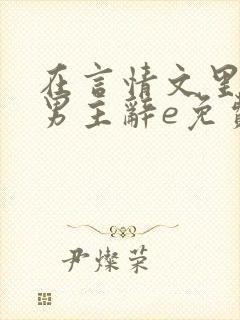 在言情文里
男主辞e免费
尹燦荣